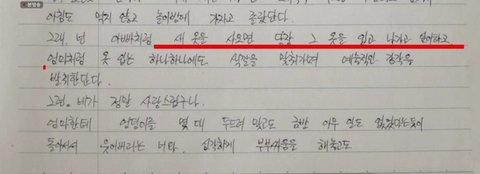 본방송
아침도 먹지 않고 놀이방에 가자고 졸랐단다.
그래, 넌 아빠처럼 새 옷을 사오면 당장 그 옷을 입고 나가고 싶어하고
엄마처럼 옷 입는 하나하나에도 색깔을 맞춰가며 예술적인 감각을
발휘한단다.
그런 네가 정말 사랑스럽구나.
엄마한테 엉덩이를 몇 대 두드려 맞고도 금방 아무 일도 없었다는듯이
돌아서서 웃어버리는 너다. 심각하게 부부싸움을 해놓고도